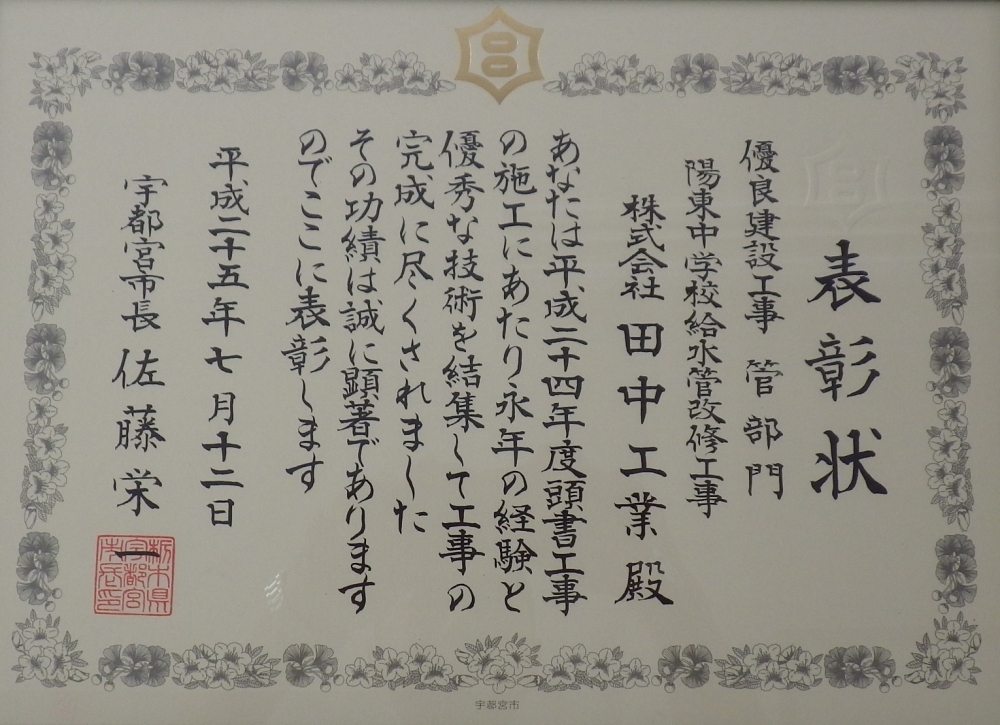 表彰状
優良建設工事 管部門
陽東中学校給水管改修工事
株式会社 田中工業殿
あなたは平成二十四年度頭書工事
の施工にあたり永年の経験と
優秀な技術を結集して工事の
完成に尽くされました
その功績は誠に顕著であります
のでここに表彰します
平成二十五年七月十二日
宇都宮市長 佐藤栄一
栃木県
宇都宮
市長印
宇都宮市